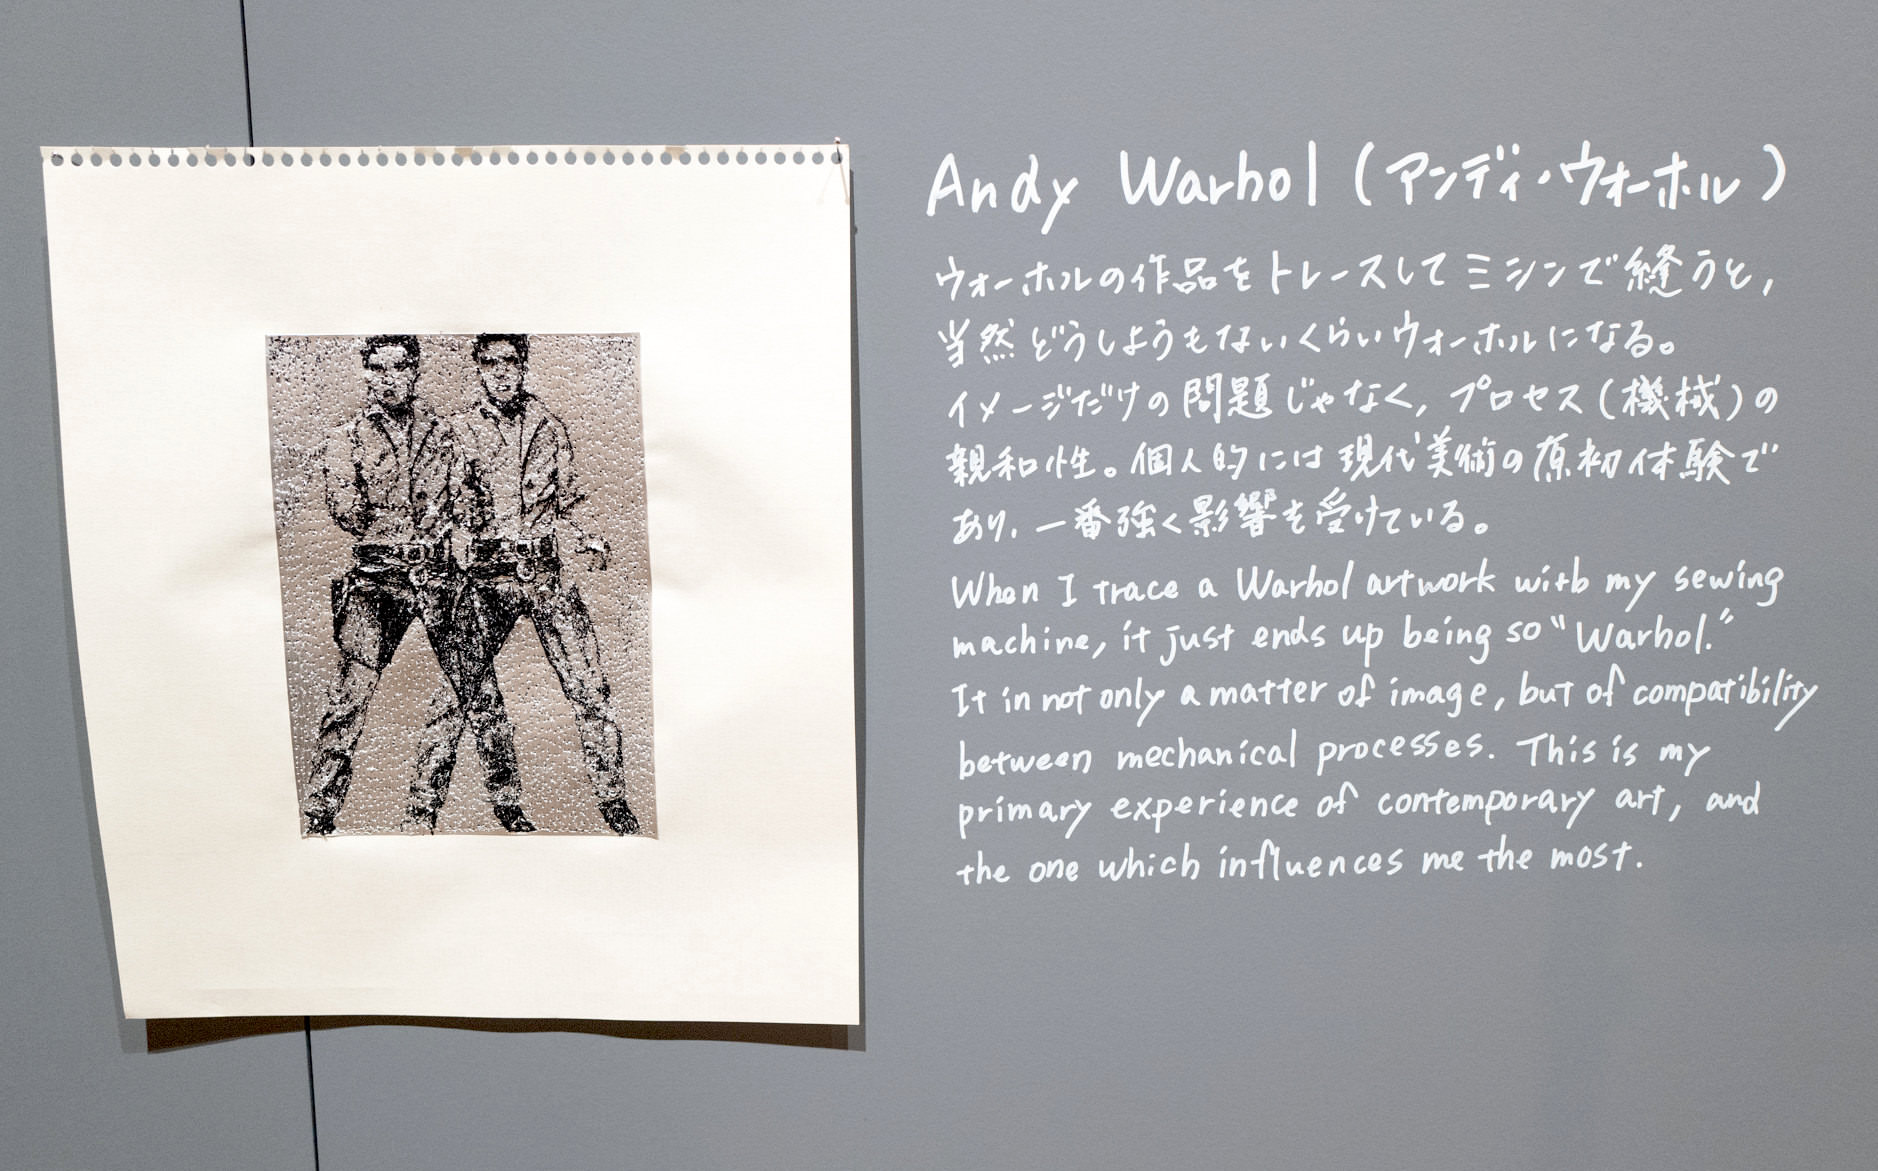 Andy Warhol (アンディ・ウォーホル)
ウォーホルの作品をトレースしてミシンで縫うと,
当然どうしようもないくらいウォーホルになる。
イメージだけの問題じゃなく, プロセス(機械)の
親和性。個人的には現代美術の原初体験で
あり, 一番強く影響を受けている。
When I trace a Warhol artwork with my sewing
machine, it just ends up being so "Warhol."
It in not only a matter of image, but of compatibility
between mechanical processes. This is my
primary experience of contemporary art, and
the one which influences me the most.